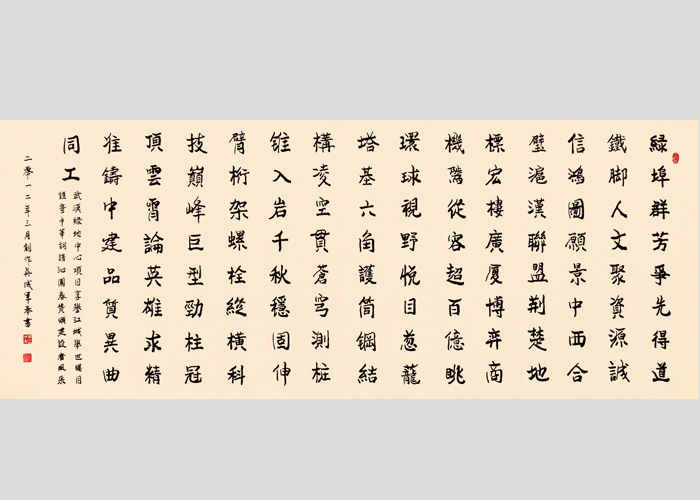 綠埠群芳爭先得道
鐵脚人文聚資源誠
信鴻圖願景中西合
璧滬漢聯盟荆楚地
標宏樓廣厦博弈商
機騰從容超百億眺
環球視野悅目蔥蘢
塔基六角護筒鋼結
構凌空貫蒼穹測樁
錐入岩千秋穩固伸
臂桁架螺栓縱橫科
技巔峰巨型勁柱冠
頂雲霄論英雄求精
准鑄中建品質異曲
同工
武漢綠地中心項目享譽江城舉世矚目
謹寄中華詞譜沁園春贊頌建設者風采
二零一二年三月創作